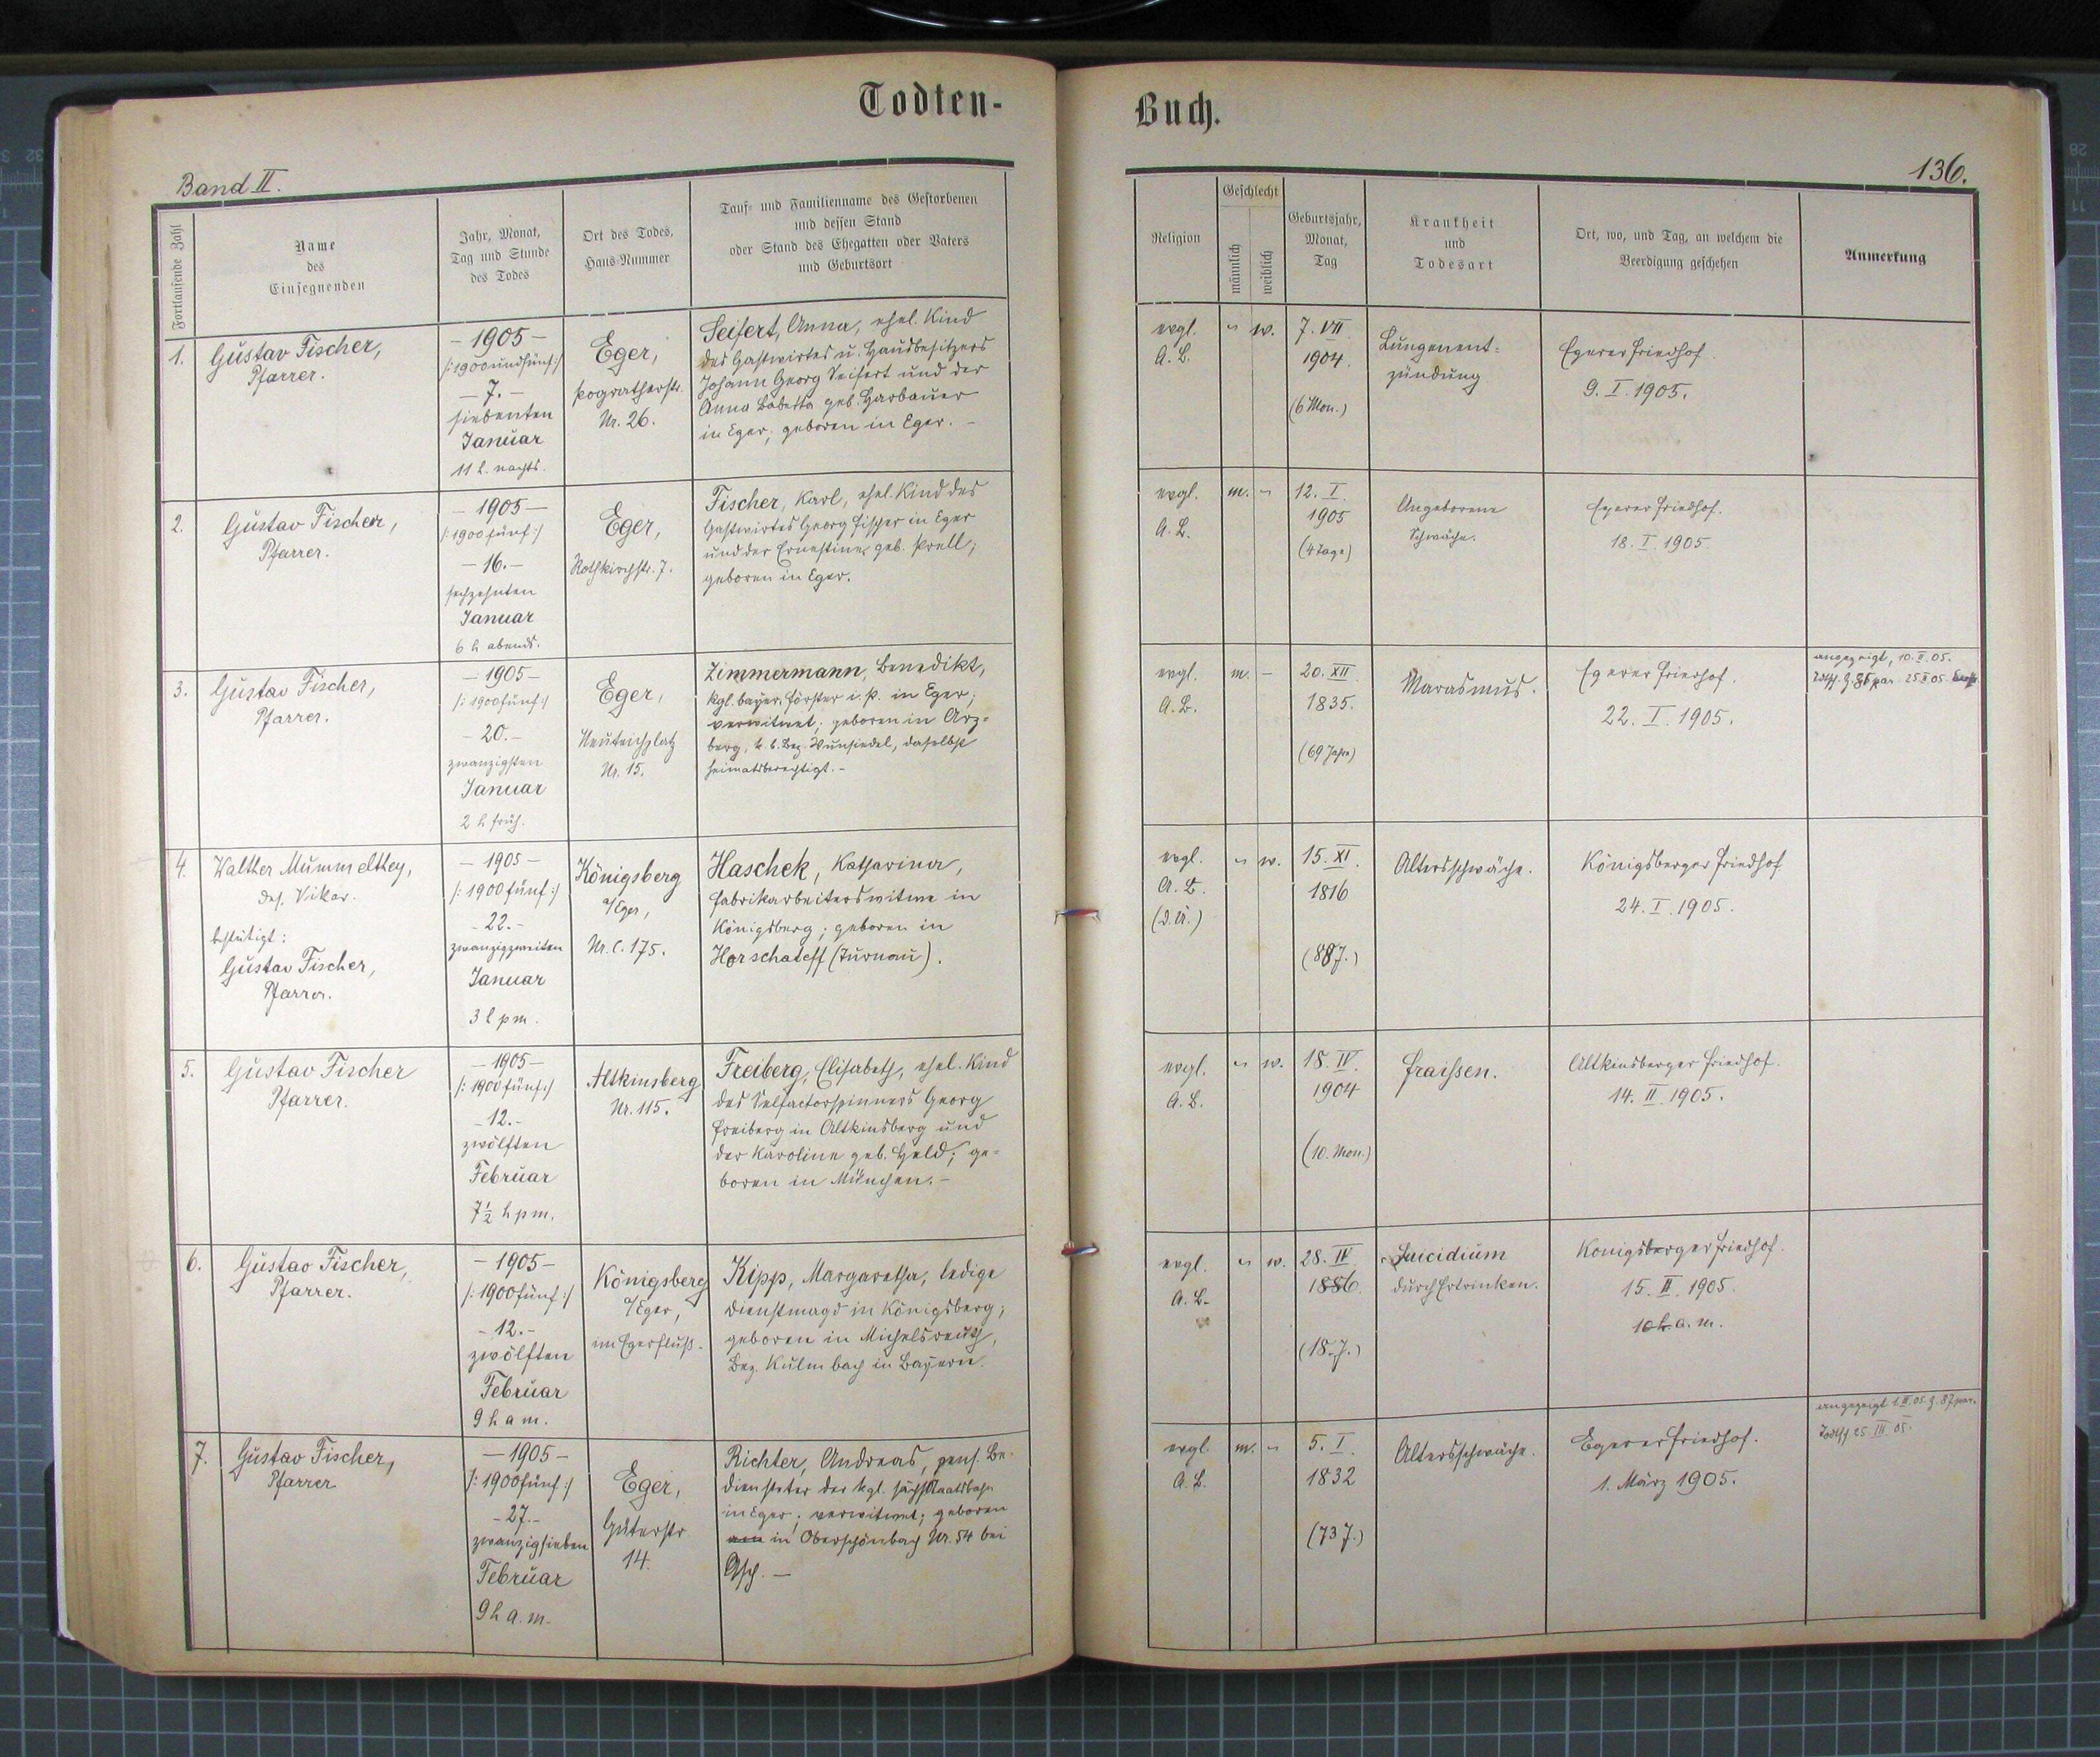 Todten-
Buch.
Band II.
136.
Fortlaufende Zahl
Name
des
Einsegnenden
Jahr, Monat,
Tag und Stunde
des Todes
Ort des Todes,
Haus-Nummer
Tauf- und Familienname des Gestorbenen
und dessen Stand
oder Stand des Ehegatten oder Vaters
und Geburtsort
Religion
Geschlecht
männlich
weiblich
Geburtsjahr,
Monat,
Tag
Krankheit
und
Todesart
Ort, wo, und Tag, an welchem die
Beerdigung geschehen
Anmerkung
1.
Gustav Fischer,
Pfarrer.
- 1905 -
/:1900undfünf:/
- 7. -
siebenten
Januar
11 h. nachts.
Eger,
Pogratherstr.
Nr. 26.
Seifert, Anna, ehel. Kind
des Gastwirtes u. Hausbesitzers
Johann Georg Seifert und der
Anna Babetta geb. Harbauer
in Eger; geboren in Eger. -
evgl.
A. B.
" w.
7. VII
1904.
(6 Mon.)
Lungenent=
zündung
Egerer Friedhof.
9. I. 1905.
2.
Gustav Fischer,
Pfarrer.
- 1905 -
/:1900fünf:/
- 16. -
sechzehnten
Januar
6 h abends.
Eger,
Rothkirchstr. 7.
Fischer, Karl, ehel. Kind des
Gastwirtes Georg Fischer in Eger
und der Ernestine, geb. Prell;
geboren in Eger.
evgl.
A. B.
m. "
12. I.
1905
(4 Tage)
Angeborene
Schwäche.
Egerer Friedhof.
18. I. 1905.
3.
Gustav Fischer,
Pfarrer.
- 1905 -
/:1900fünf:/
- 20. -
zwanzigsten
Januar
2 h früh.
Eger,
Neuteichplatz
Nr. 15.
Zimmermann, Benedikt,
kgl. bayer. Förster i. P. in Eger;
verwitwet; geboren in Arz=
berg, k. b. Bez. Wunsiedel, daselbst
heimatsberechtigt. -
evgl.
A. B.
m. -
20. XII.
1835.
(69 Jahre)
Marasmus.
Egerer Friedhof.
22. I. 1905.
angezeigt, 10. II. 05.
4.
Walther Mummelthey,
des. Vikar.
bestätigt:
Gustav Fischer,
Pfarrer.
- 1905 -
/:1900fünf:/
- 22. -
zwanzigzweiten
Januar
3 h pm.
Königsberg
a/Eger,
Nr. C. 175.
Haschek, Katharina,
Fabrikarbeiterswitwe in
Königsberg; geboren in
Horschateff (Turnau).
evgl.
A. B.
(d. Ü.)
" w.
15. XI.
1816
(88 J.)
Altersschwäche.
Königsberger Friedhof
24. I. 1905.
5.
Gustav Fischer
Pfarrer.
- 1905 -
/:1900fünf:/
- 12. -
zwölften
Februar
7½ h pm.
Altkinsberg
Nr. 115.
Freiberg, Elisabeth, ehel. Kind
des Selfactorspinners Georg
Freiberg in Altkinsberg und
der Karoline geb. Held; ge=
boren in München. -
evgl.
A. B.
" w.
18. IV.
1904
(10. Mon.)
Fraissen.
Altkinsberger Friedhof.
14. II. 1905.
6.
Gustav Fischer,
Pfarrer.
- 1905 -
/:1900fünf:/
- 12. -
zwölften
Februar
9 h a m.
Königsberg
a/Eger,
im Egerfluß.
Kipp, Margaretha, ledige
Dienstmagd in Königsberg;
geboren in Michelsreuth,
Bez. Kulmbach in Bayern.
evgl.
A. B.
" w.
28. IV.
1886.
(18. J.)
Suicidium
durch Ertrinken.
Königsberger Friedhof.
15. II. 1905.
10 h. a. m.
7.
Gustav Fischer,
Pfarrer
- 1905 -
/:1900fünf:/
- 27. -
zwanzigsieben
Februar
9 h a. m.
Eger,
Güterstr
14.
Richter, Andreas, pens. Be-
diensteter der kgl. sächs. Staatsbahn
in Eger; verwitwet; geboren
in Oberschönbach Nr. 54 bei
Asch. -
evgl.
A. B.
m. "
5. I.
1832
(73 J.)
Altersschwäche.
Egerer Friedhof.
1. März 1905.
angezeigt 1. III. 05. Z. 87 par.
25 III 05.